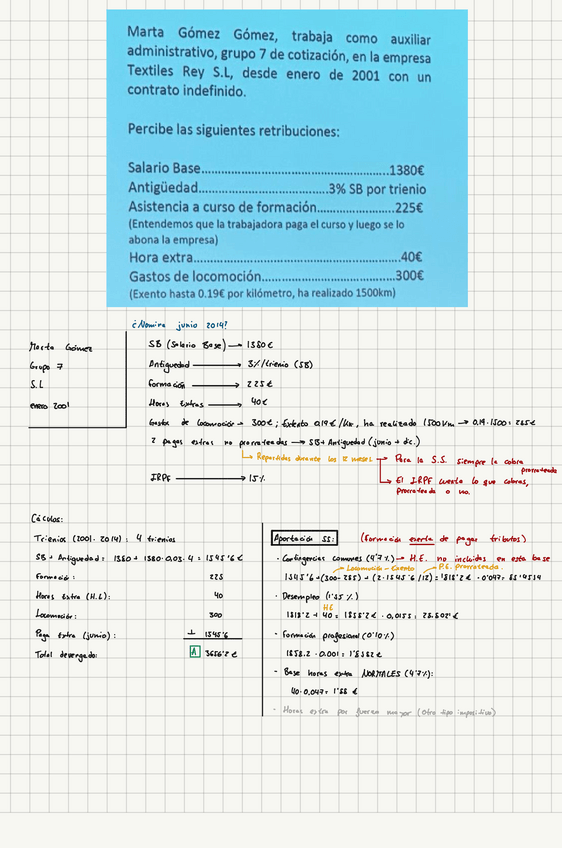 Marta Gómez Gómez, trabaja como auxiliar
administrativo, grupo 7 de cotización, en la empresa
Textiles Rey S.L, desde enero de 2001 con un
contrato indefinido.
Percibe las siguientes retribuciones:
Salario Base..................................................1380€
Antigüedad................................3% SB por trienio
Asistencia a curso de formación....................225€
(Entendemos que la trabajadora paga el curso y luego se lo
abona la empresa)
Hora extra........................................................40€
Gastos de locomoción...................................300€
(Exento hasta 0.19€ por kilómetro, ha realizado 1500km)
¿Nomina junio 2014?
Marta Gómez
Grupo 7
S.L
enero 2001
SB (Salario Base) → 1380€
Antiguedad → 3%/trienio (SB)
Formación → 225€
Horas Extras → 40€
Gastos de locomoción → 300€; Exento 0.19€/Km, ha realizado 1500Km → 0.19·1500 = 285€
2 pagas extras no prorrateadas → SB + Antiguedad (junio + dic.)
Repartidas durante los 12 meses
Para la S.S. siempre la cobra prorrateada
El IRPF cuenta lo que cobras, prorrateada o no.
IRPF → 15%
Cálculos:
Trienios (2001-2014): 4 trienios
SB + Antiguedad: 1380 + 1380·0.03·4 = 1545'6€
Formación: 225
Horas Extra (H.E): 40
Locomoción: 300
Paga Extra (junio): + 1545'6
Total devengado: A 3656'2€
Aportación SS: (Formación exenta de pagar tributos)
- Contingencias comunes (4'7%) → H.E. no incluidas en esta base
Locomoción - Exento
P.E. prorrateada
1545'6 + (300-285) + (2·1545'6/12) = 1818'2€ · 0'047 = 85'4554
- Desempleo (1'55%)
H.E
1818'2 + 40 = 1858'2€ · 0.0155 = 28.8021€
- Formación profesional (0'10%)
1858.2 · 0.001 = 1'8582€
- Base horas extra NORMALES (4'7%):
40·0.047 = 1'88€
- Horas extra por fuerza mayor (Otro tipo impositivo)